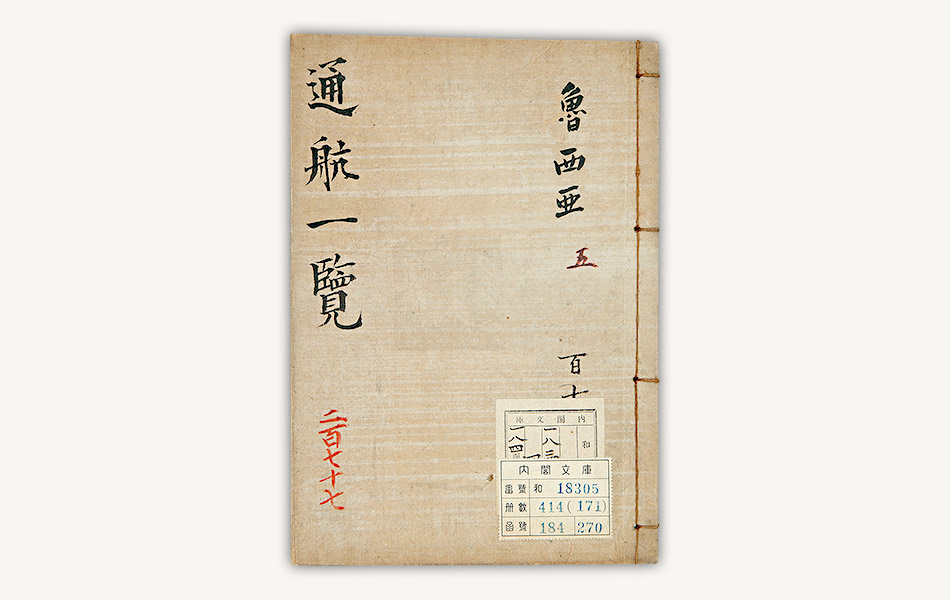 魯西亜 五 百十
通航一覽
二百七十七
内閣文庫
和
内閣文庫
番號 和 18305
冊數 414(171)
函號 184 270